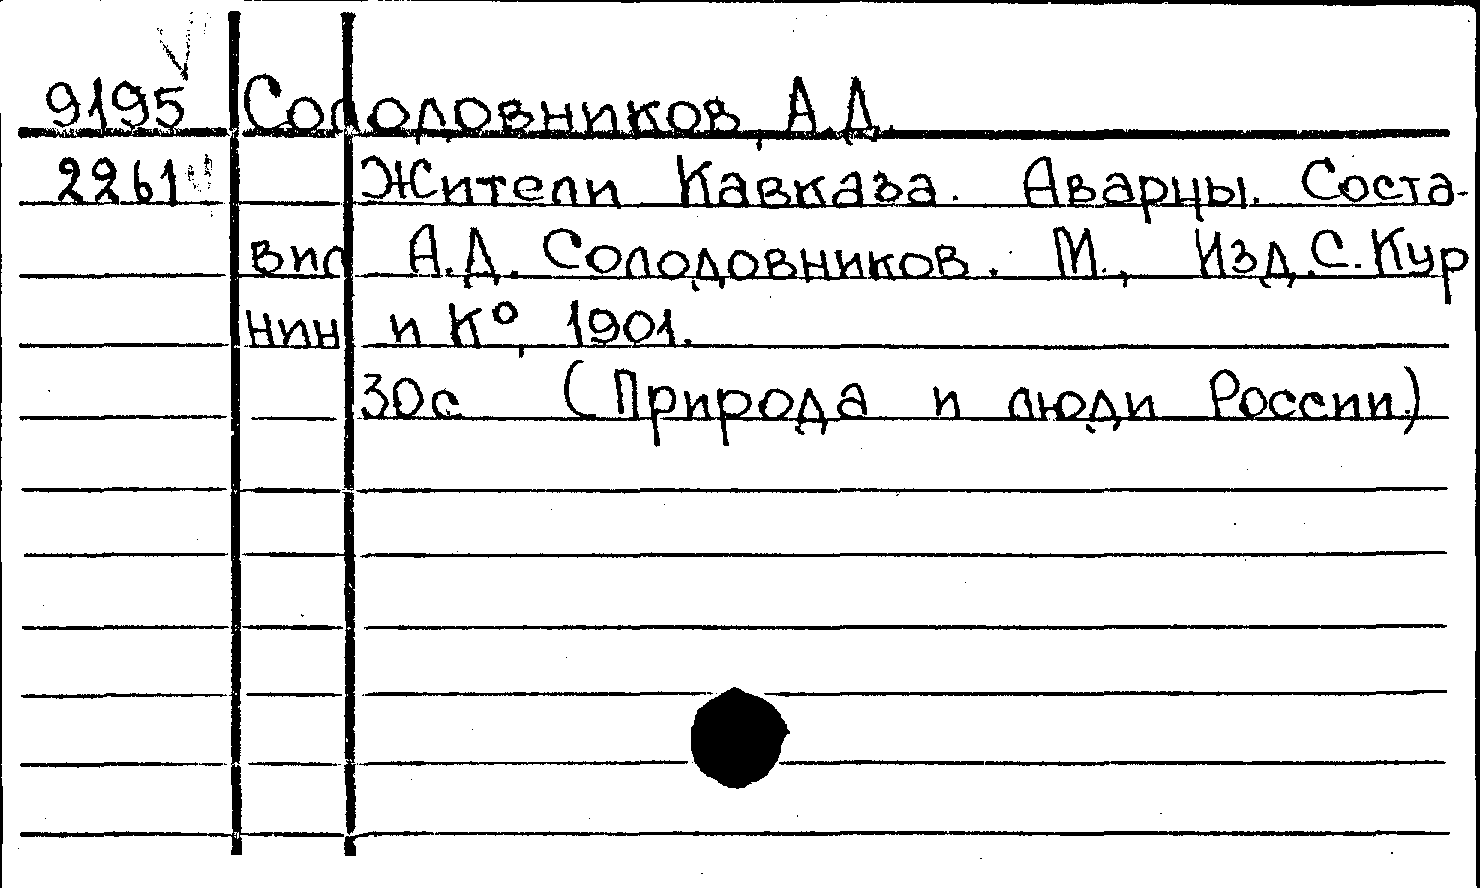 9195 Солодовников, А.Д.
2261 Жители Кавказа. Аварцы. Соста-
вил А.Д. Солодовников. М., Изд. С. Кур
нин и К°, 1901.
30с (Природа и люди России.)